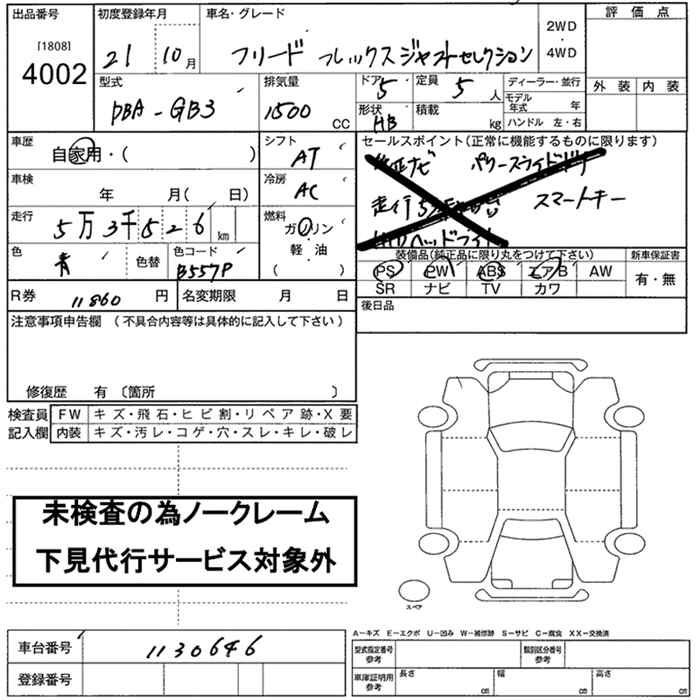 出品番号 初度登録年月 車名・グレード 評価点
[1808] 21 10月 フリード フレックスジャストセレクション 2WD・4WD
4002 外装 内装
型式 排気量 ドア 5 定員 5人 ディーラー・並行
DBA-GB3 1500CC 形状 HB 積載 kg モデル年式 年
ハンドル 左・右
車歴 シフト セールスポイント(正常に機能するものに限ります)
自家用・( ) AT 純正ナビ パワースライドドア
車検 冷房
年 月( 日) AC スマートキー
走行 燃料
5万3千526km ガソリン HIDヘッドライト
色 色替 色コード 軽・油 装備品(純正品に限り丸をつけて下さい) 新車保証書
青 B557P ( ) PS PW ABS エアB AW 有・無
SR ナビ TV カワ
R券 11860円 名変期限 月 日 後日品
注意事項申告欄(不具合内容等は具体的に記入して下さい)
修復歴 有〔箇所 〕
検査員 FW キズ・飛石・ヒビ割・リペア跡・X要
記入欄 内装 キズ・汚レ・コゲ・穴・スレ・キレ・破レ
未検査の為ノークレーム
下見代行サービス対象外
スペア
A−キズ E−エクボ U−凹み W−補修跡 S−サビ C−腐食 XX−交換済
車台番号 1130646 型式指定番号 参考 類別区分番号 参考
登録番号 車庫証明用 参考 長さ cm 幅 cm 高さ cm